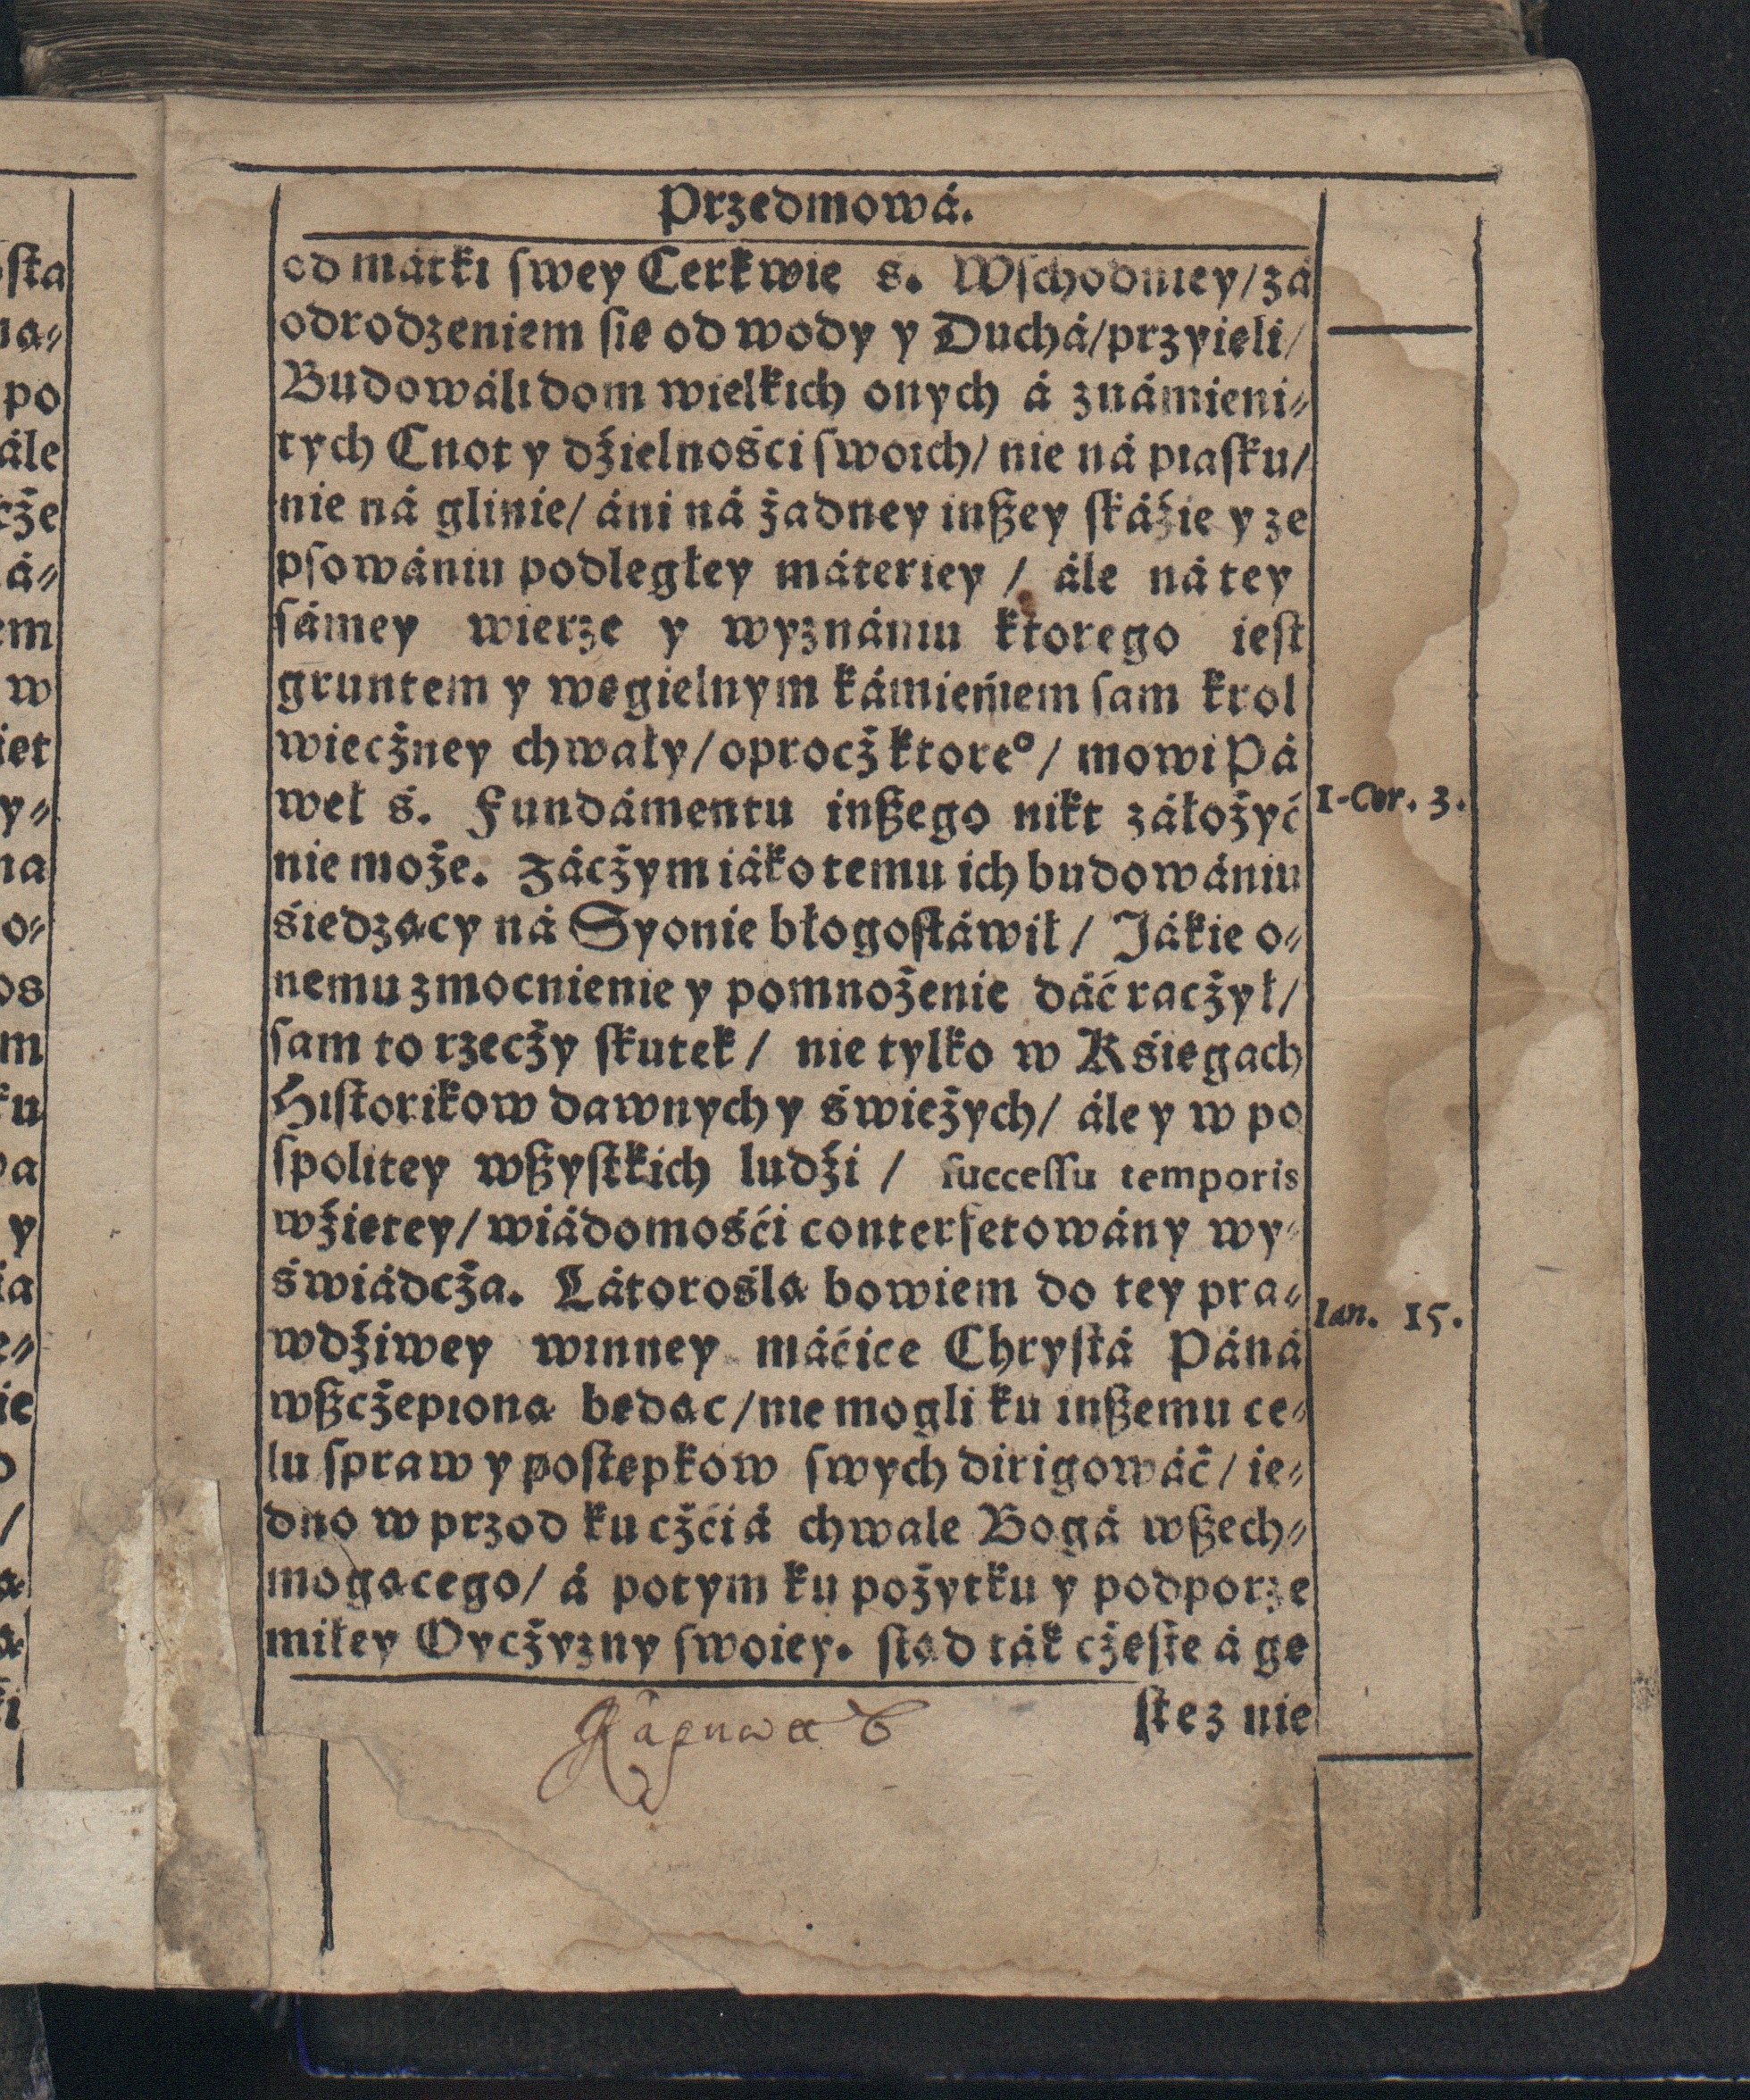 Przedmowá.
od mátki ſwey Cerkwie s. Wſchodniey/zá
odrodzeniem ſię od wody y Duchá/przyięli/
Budowáli dom wielkich onych á známieni⸗
tych Cnot y dźielnośći ſwoich/ nie ná piaſku/
nie ná glinie/ áni ná żadney inßey ſkáźie y ze
pſowániu podległey máteriey / ále ná tey
ſámey wierze y wyznániu ktorego ieſt
gruntem y węgielnym kámieniem ſam krol
wiecżney chwały/oprocż ktoreº/ mowi Pá
weł ś. Fundámentu inßego nikt záłożyć
nie może. Zácżym iáko temu ich budowániu
śiedzący ná Syonie błogoſłáwił/ Jákie o⸗
nemu zmocnienie y pomnożenie dáć racżył/
ſam to rzecży ſkutek/ nie tylko w Kśięgach
Hiſtorikow dawnych y świeżych/ ále y w po
ſpolitey wßyſtkich ludźi / ſucceſſu temporis
wźiętey/wiádomośći conterfetowány wy⸗
świádcża. Látoroślą bowiem do tey pra⸗
wdźiwey winney máćice Chryſtá Páná
wßcżepioną będąc/nie mogli ku inßemu ce⸗
lu ſpraw y poſtępkow ſwych dirigowáć/ ie⸗
dno w przod ku cżći á chwale Bogá wßech⸗
mogącego/ á potym ku pożytku y podporze
miłey Oycżyzny ſwoiey. ſtąd ták cżęſte á gę
ſtez nie
1-Cor. 3.
Ian. 15.
oſta
na⸗
po
ále
cże
á⸗
em
w
iet
y⸗
na
o⸗
os
m
ku
a
y
ia
e⸗
ie
/